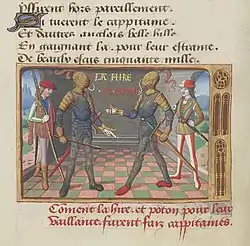 Yssirent hors pareillement.
Et tuerent le cappitaine.
Et dautres anglois belle kille
En gaignant la. pour leur estraine.
De beaulx escus cinquante mille.
LA HIRE
POTON
Coment la hire. et poton pour leur
vaillance furent faiz cappitaines.